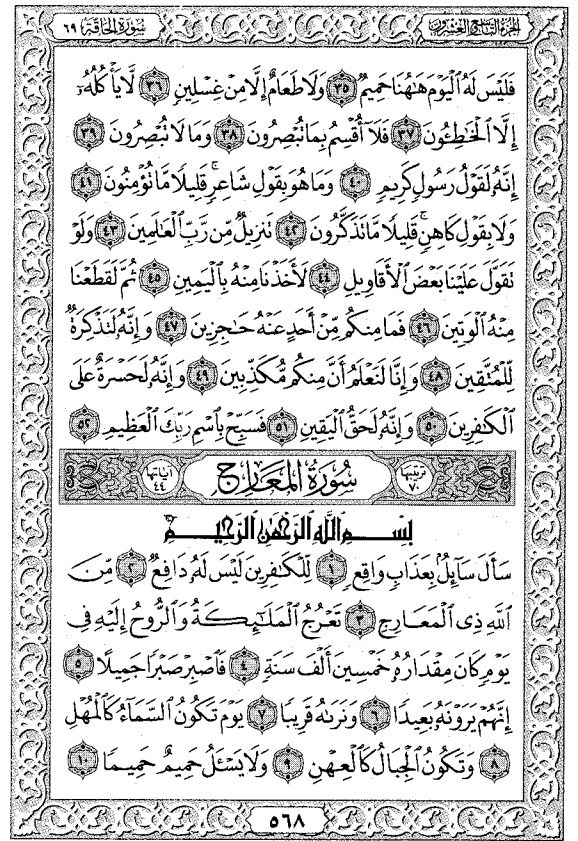 الجزء التاسع والعشرون
سورة الحاقة ٦٩
فَلَيْسَ لَهُ الْيَوْمَ هَٰهُنَا حَمِيمٌ ٣٥ وَلَا طَعَامٌ إِلَّا مِنْ غِسْلِينٍ ٣٦ لَّا يَأْكُلُهُۥٓ
إِلَّا الْخَٰطِـُٔونَ ٣٧ فَلَآ أُقْسِمُ بِمَا تُبْصِرُونَ ٣٨ وَمَا لَا تُبْصِرُونَ ٣٩
إِنَّهُۥ لَقَوْلُ رَسُولٍ كَرِيمٍ ٤٠ وَمَا هُوَ بِقَوْلِ شَاعِرٍ ۚ قَلِيلًا مَّا تُؤْمِنُونَ ٤١
وَلَا بِقَوْلِ كَاهِنٍ ۚ قَلِيلًا مَّا تَذَكَّرُونَ ٤٢ تَنزِيلٌ مِّن رَّبِّ الْعَٰلَمِينَ ٤٣ وَلَوْ
تَقَوَّلَ عَلَيْنَا بَعْضَ الْأَقَاوِيلِ ٤٤ لَأَخَذْنَا مِنْهُ بِالْيَمِينِ ٤٥ ثُمَّ لَقَطَعْنَا
مِنْهُ الْوَتِينَ ٤٦ فَمَا مِنكُم مِّنْ أَحَدٍ عَنْهُ حَٰجِزِينَ ٤٧ وَإِنَّهُۥ لَتَذْكِرَةٌ
لِّلْمُتَّقِينَ ٤٨ وَإِنَّا لَنَعْلَمُ أَنَّ مِنكُم مُّكَذِّبِينَ ٤٩ وَإِنَّهُۥ لَحَسْرَةٌ عَلَى
الْكَٰفِرِينَ ٥٠ وَإِنَّهُۥ لَحَقُّ الْيَقِينِ ٥١ فَسَبِّحْ بِاسْمِ رَبِّكَ الْعَظِيمِ ٥٢
ترتيبها ٧٠ سُورَةُ الْمَعَارِجِ آياتها ٤٤
بسم الله الرحمن الرحيم
سَأَلَ سَآئِلٌۢ بِعَذَابٍ وَاقِعٍ ١ لِّلْكَٰفِرِينَ لَيْسَ لَهُۥ دَافِعٌ ٢ مِّنَ
اللَّهِ ذِى الْمَعَارِجِ ٣ تَعْرُجُ الْمَلَٰٓئِكَةُ وَالرُّوحُ إِلَيْهِ فِى
يَوْمٍ كَانَ مِقْدَارُهُۥ خَمْسِينَ أَلْفَ سَنَةٍ ٤ فَاصْبِرْ صَبْرًا جَمِيلًا ٥
إِنَّهُمْ يَرَوْنَهُۥ بَعِيدًا ٦ وَنَرَىٰهُ قَرِيبًا ٧ يَوْمَ تَكُونُ السَّمَآءُ كَالْمُهْلِ
٨ وَتَكُونُ الْجِبَالُ كَالْعِهْنِ ٩ وَلَا يَسْـَٔلُ حَمِيمٌ حَمِيمًا ١٠
٥٦٨